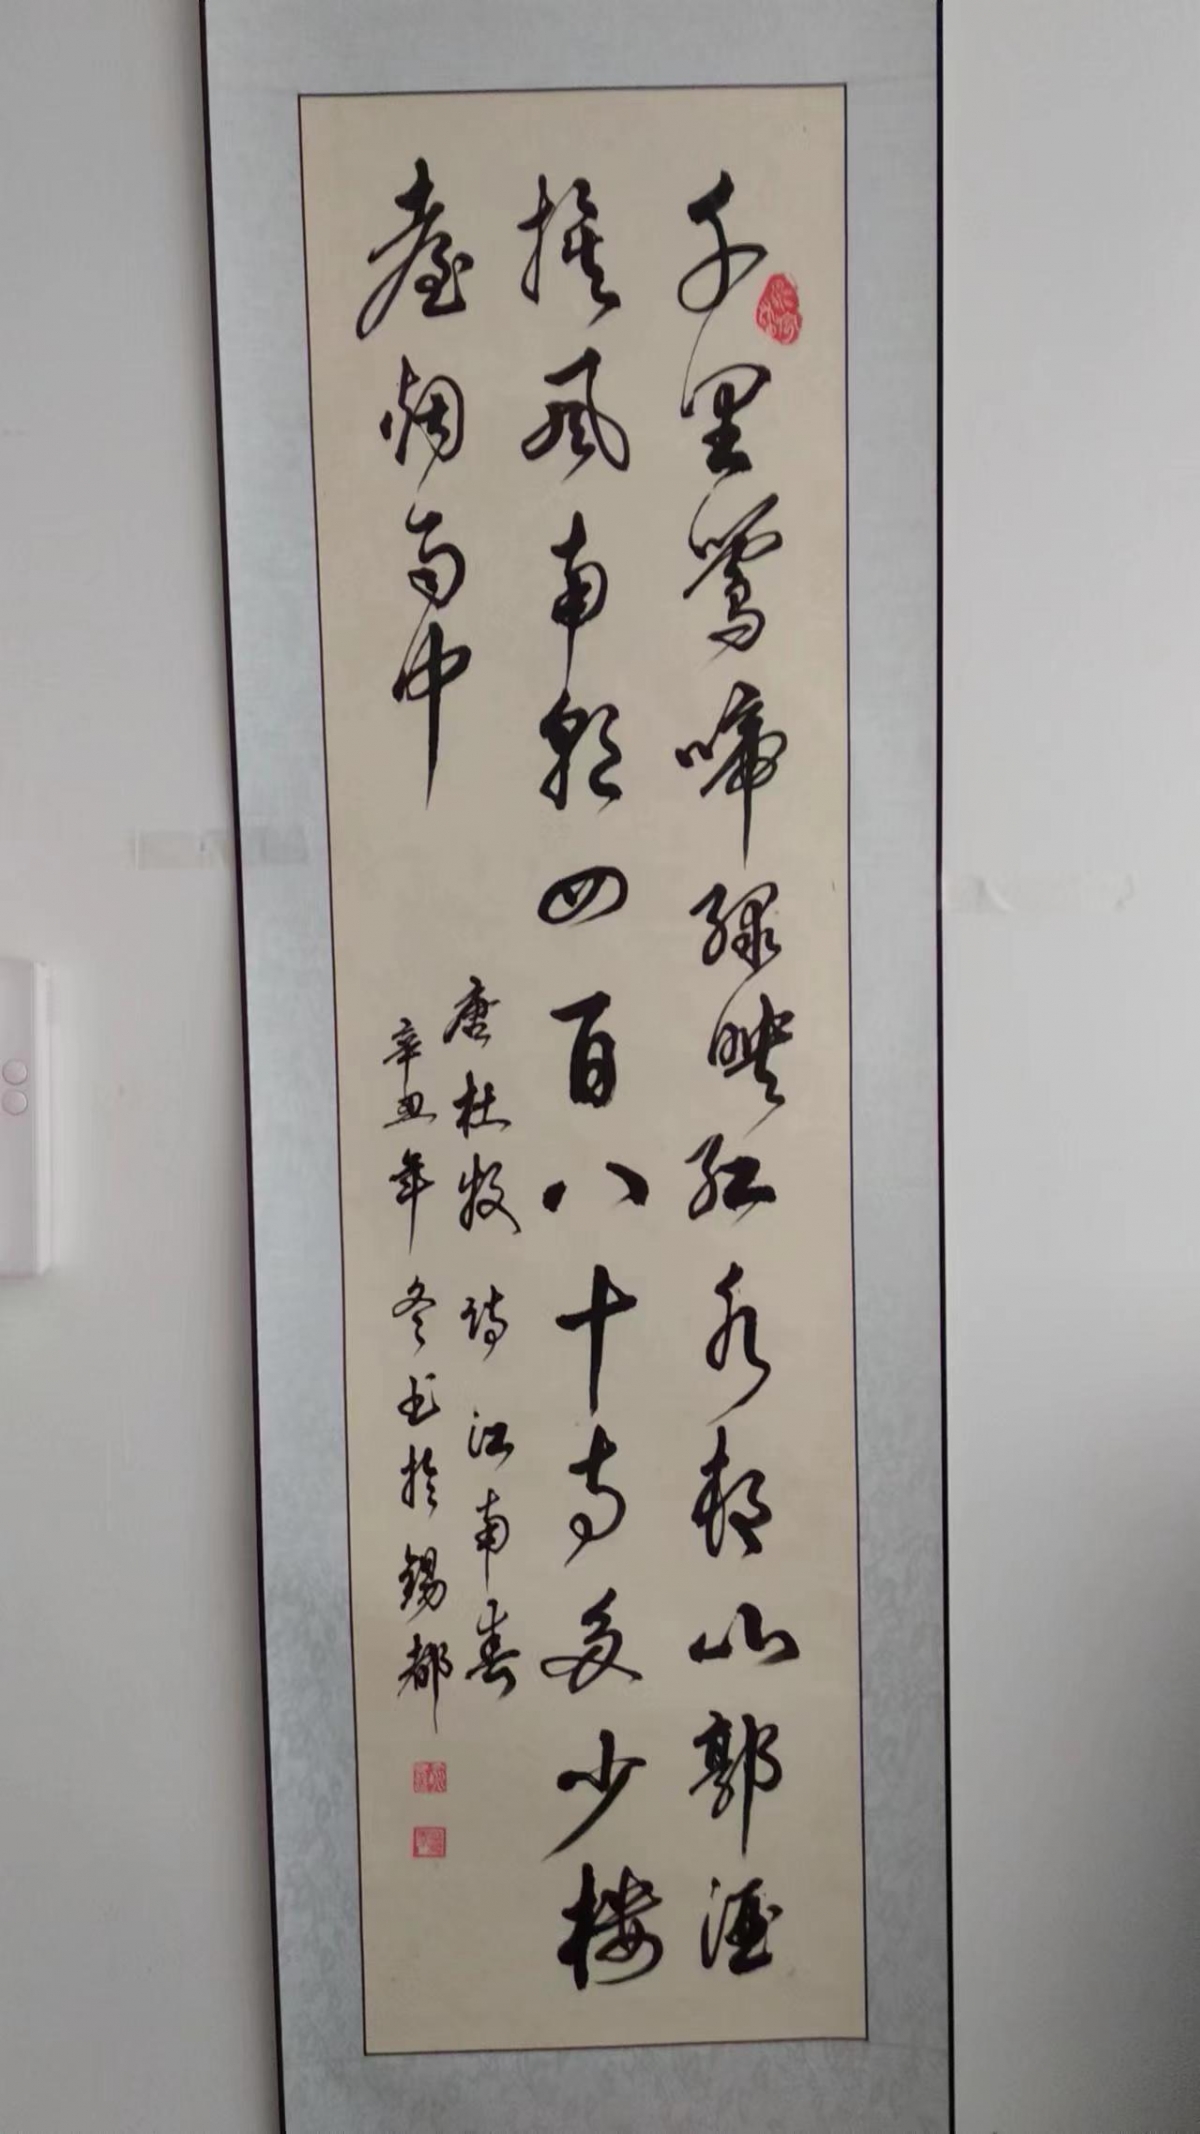 千里莺啼绿映红水邨山郭酒
旗风南朝四百八十寺多少楼
臺烟雨中
唐杜牧诗江南春
辛丑年冬书於锡都